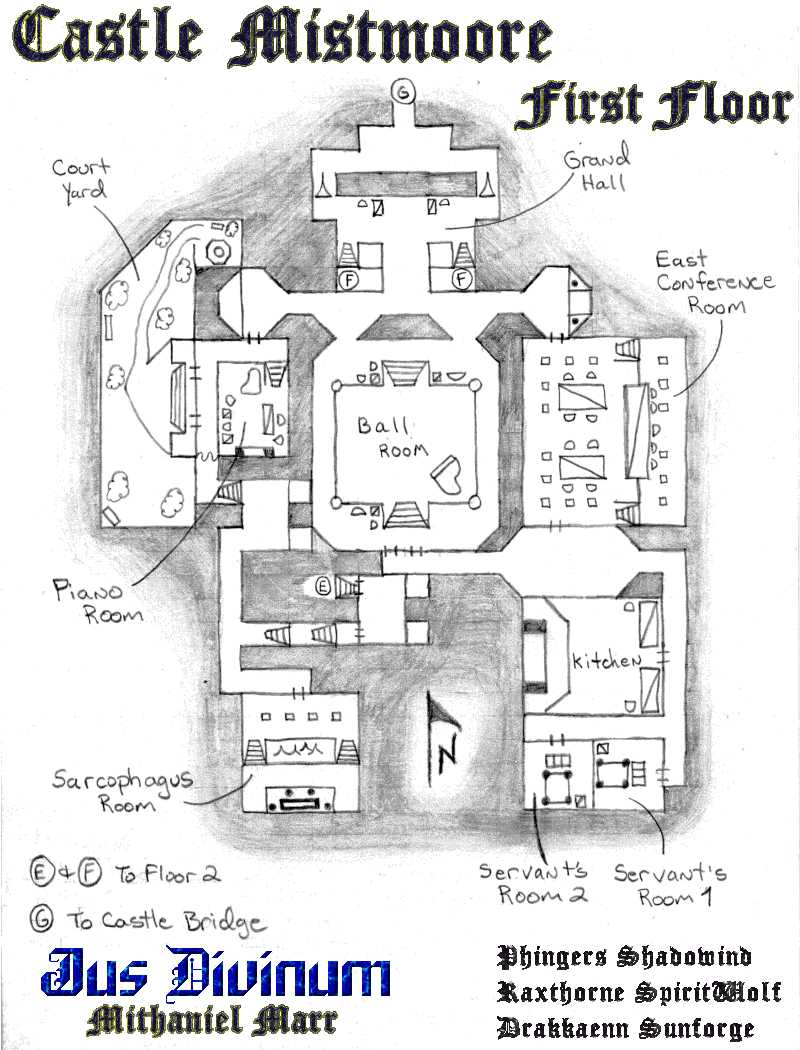 Castle Mistmoore
First Floor
G
Court
Yard
Grand
Hall
F
F
East
Conference
Room
Ball
Room
Piano
Room
E
Kitchen
N
Sarcophagus
Room
Servant's
Room 2
Servant's
Room 1
E & F To Floor 2
G To Castle Bridge
Jus Divinum
Mithaniel Marr
Phingers Shadowind
Raxthorne SpiritWolf
Drakkaenn Sunforge